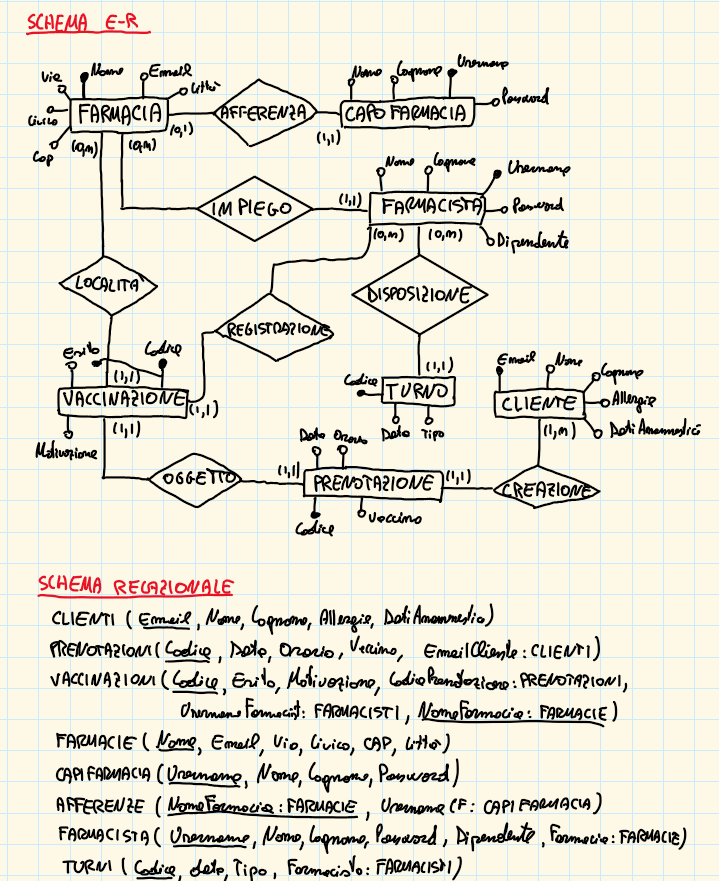 SCHEMA E-R
Via
Nome
Email
Città
Civico
Cap
FARMACIA
(0,m)
(0,m)
(0,1)
AFFERENZA
(1,1)
Nome
Cognome
Username
Password
CAPO FARMACIA
IMPIEGO
(1,1)
Nome
Cognome
Username
Password
Dipendente
FARMACISTA
(0,m)
(0,m)
LOCALITÀ
REGISTRAZIONE
DISPOSIZIONE
Esito
Codice
(1,1)
VACCINAZIONE
(1,1)
(1,1)
Motivazione
(1,1)
Codice
TURNO
Data
Tipo
Email
Nome
Cognome
Allergie
DatiAnamnestici
CLIENTE
(1,m)
OGGETTO
(1,1)
Data
Orario
PRENOTAZIONE
(1,1)
Codice
Vaccino
CREAZIONE
SCHEMA RELAZIONALE
CLIENTI (Email, Nome, Cognome, Allergie, DatiAnamnestici)
PRENOTAZIONI (Codice, Data, Orario, Vaccino, EmailCliente: CLIENTI)
VACCINAZIONI (Codice, Esito, Motivazione, CodicePrenotazione: PRENOTAZIONI,
UsernameFarmacist: FARMACISTI, NomeFarmacia: FARMACIE)
FARMACIE (Nome, Email, Via, Civico, CAP, Città)
CAPIFARMACIA (Username, Nome, Cognome, Password)
AFFERENZE (NomeFarmacia: FARMACIE, UsernameCF: CAPIFARMACIA)
FARMACISTA (Username, Nome, Cognome, Password, Dipendente, Farmacia: FARMACIE)
TURNI (Codice, data, Tipo, Farmacista: FARMACISTI)